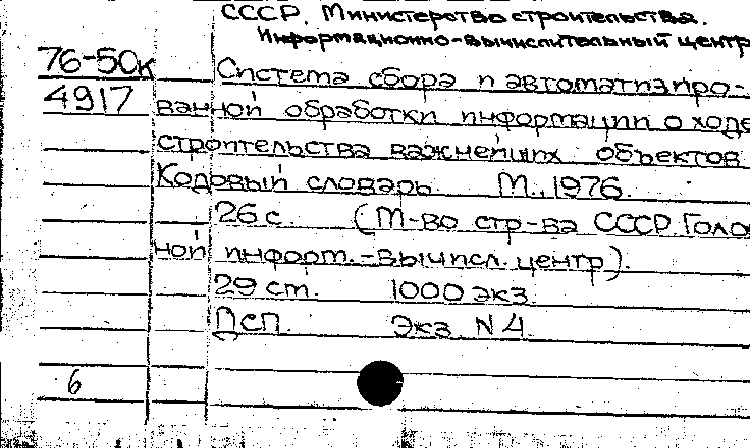 СССР. Министерство строительства.
Информационно-вычислительный центр
76-50к Система сбора и автоматизиро-
4917 ванной обработки информации о ходе
строительства важнейших объектов
Кодовый словарь. М., 1976.
26 с. (М-во стр-ва СССР. Голов
ной информ.-вычисл. центр).
29 ст. 1000 экз.
ДСП. Экз. N 4.
6